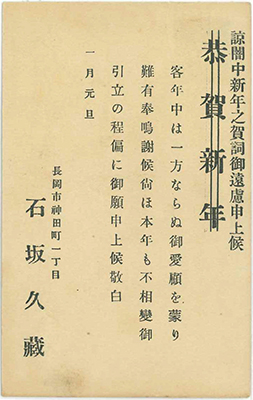 諒闇中新年之賀詞御遠慮申上候
恭賀新年
客年中は一方ならぬ御愛顧を蒙り
難有奉鳴謝候尙ほ本年も不相變御
引立の程偏に御願申上候敬白
一月元旦
長岡市神田町一丁目
石坂久藏